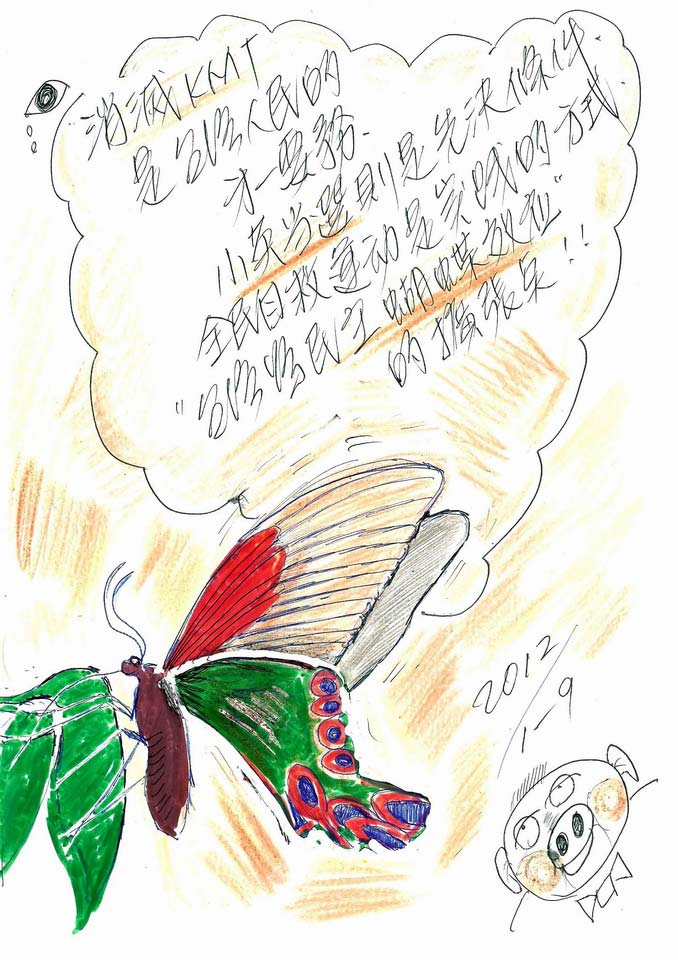 消滅KMT
是台灣人民的
才一要務.
小英当選則是先決條件.
全民自救運动是实踐的方式
"台灣慾民主蝴蝶效应"
的擴張呈!!
2012/1-9